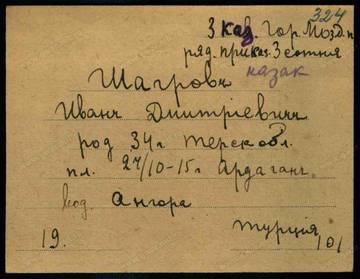 324
3 Каз. Гор. Мозд. п
ряд. приказ. 3 сотня
казак
Шагровъ
Иванъ Дмитріевичъ
род 34г Терск обл.
пл. 27/10-15г Ардаганъ.
Ангора
Турція
19. 101